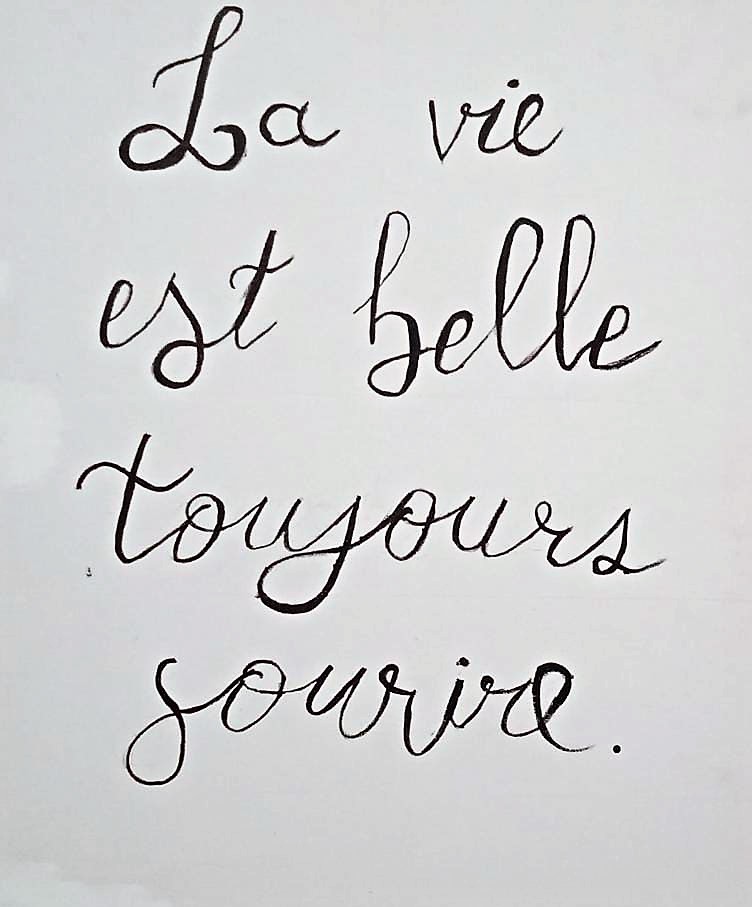 La vie
est belle
toujours
sourire.